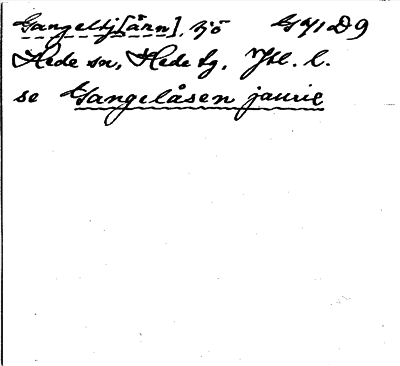 Gangeltj[ärn], sjö G 41 D 9
Hede sn, Hede tg, Jtl. l.
se Gangelåsen jaurie